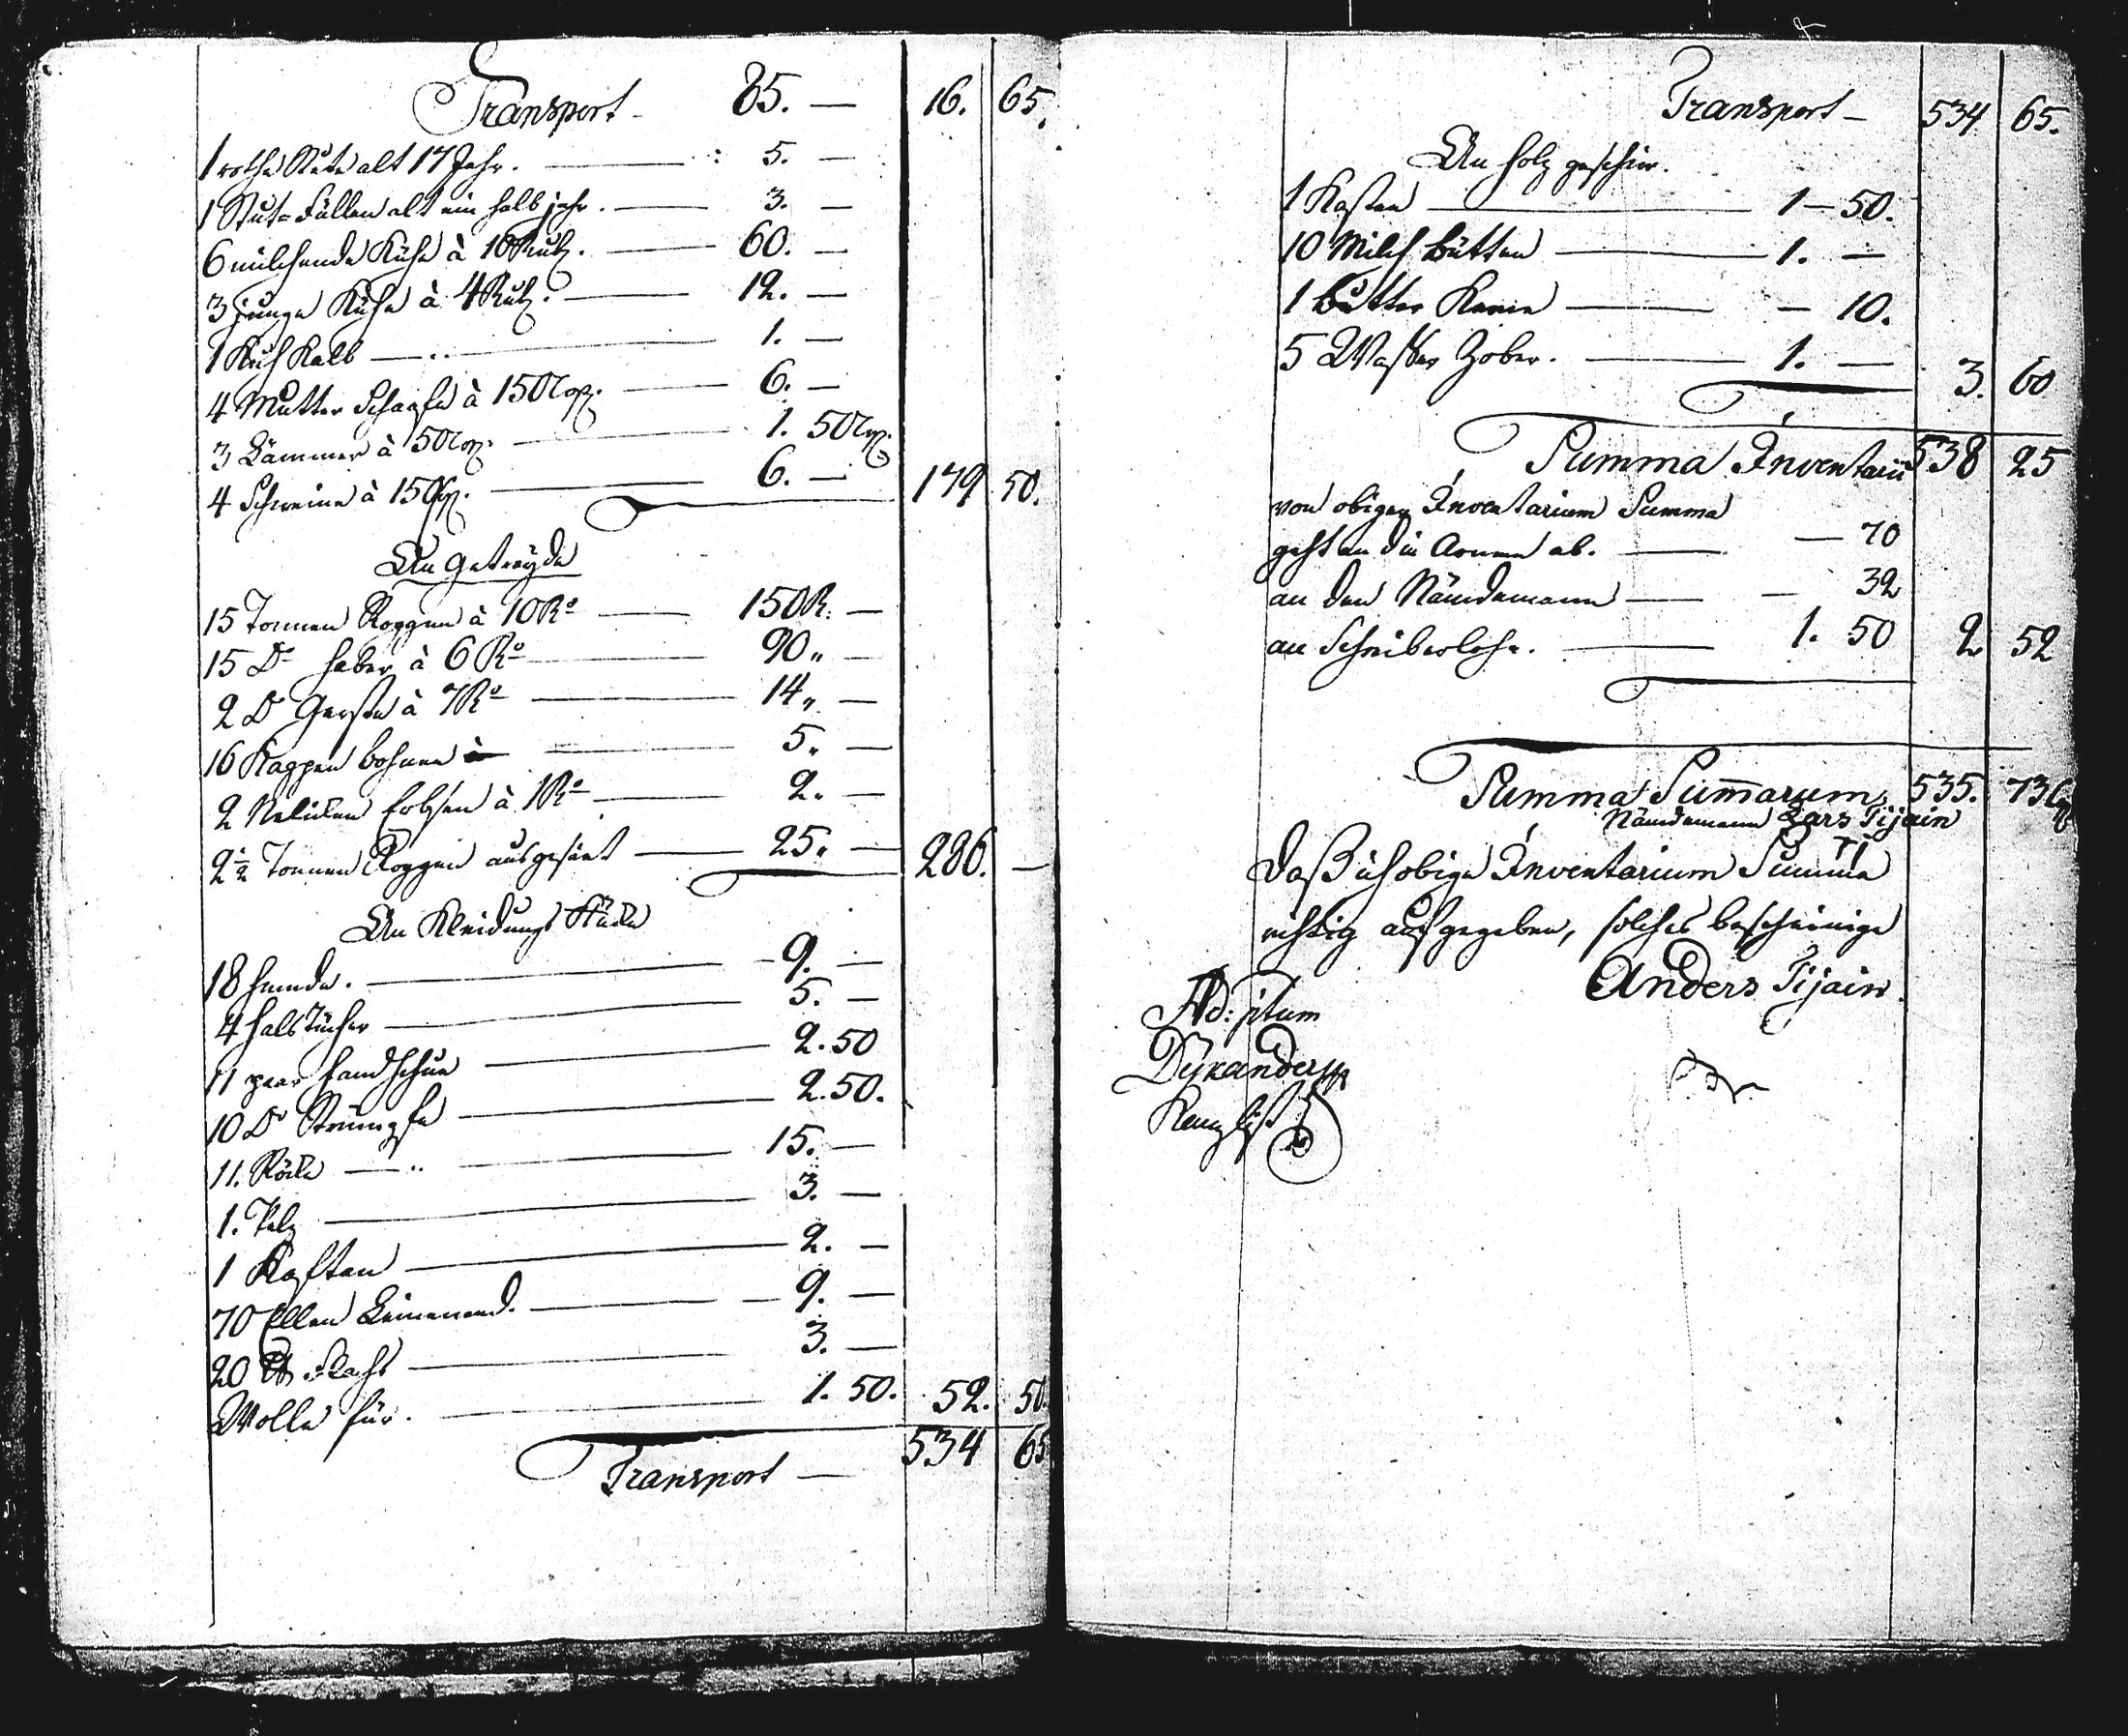 Transport - 85. — 16. 65.
1 rothe Stute alt 17 Jahr. — : 5. —
1 Stut-Füllen alt ein halb jahr. — 3. —
6 milchende Kühe à 10 Rub. — 60. —
3 junge Kühe à 4 Rub. — 12. —
1 Kuh Kalb — 1. —
4 Mutter Schaafe à 150 Cop. — 6. —
3 Lämmer à 50 Cop. — 1. 50 Cop.
4 Schweine à 150 Cop. — 6. — 179 50.
An Getreyde
15 Tonnen Roggen à 10 Ro — 150 R. —
15 Do haber à 6 Ro — 90 „ —
2 Do Gerste à 7 Ro — 14 „ —
16 Kappen bohnen — 5 „ —
2 Erbsen à 1 Ro — 2. —
2 1/2 Tonnen Roggen ausgesäet — 25 „ — 286. —
An Kleidungs Stücke
18 hemde. — 9. —
4 halstücher — 5. —
11 paar handschue — 2.50
10 Do Strümpfe — 2.50.
11. Röcke — 15. —
1. Pelz — 3. —
1 Kaftan — 2. —
70 Ellen Leinewand. — 9. —
20 ℔ Flachs — 3. —
Wolle für. — 1. 50. 52. 50.
534 65
Transport —
Transport — 534 65.
An holz geschirr.
1 Kasten — 1 — 50.
10 Milch bütten — 1. —
1 butter Kerne — — 10.
5 Wasser Zober. — 1. — 3. 60
Summa Inventarii 538 25
von obigen Inventarium Summa
geht an die Armen ab. — — 70
an den Nämdemann — — 32
an Schreiberlohn. — 1. 50 2 52
Summa Sum̅arum, 535. 73 Cop
Nämdemann Lars Tijain
Daß ich obige Inventarium Summa
richtig aufgegeben, solches bescheinige
Anders Tijain.
Dykander
Kanzlist